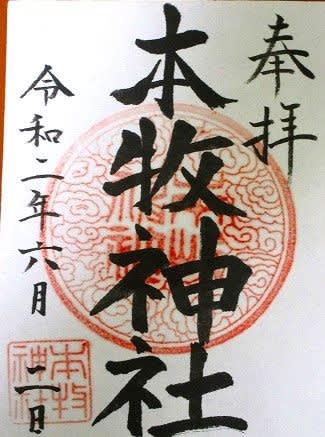 奉拝
本牧神社
令和二年六月二日
本牧
神社